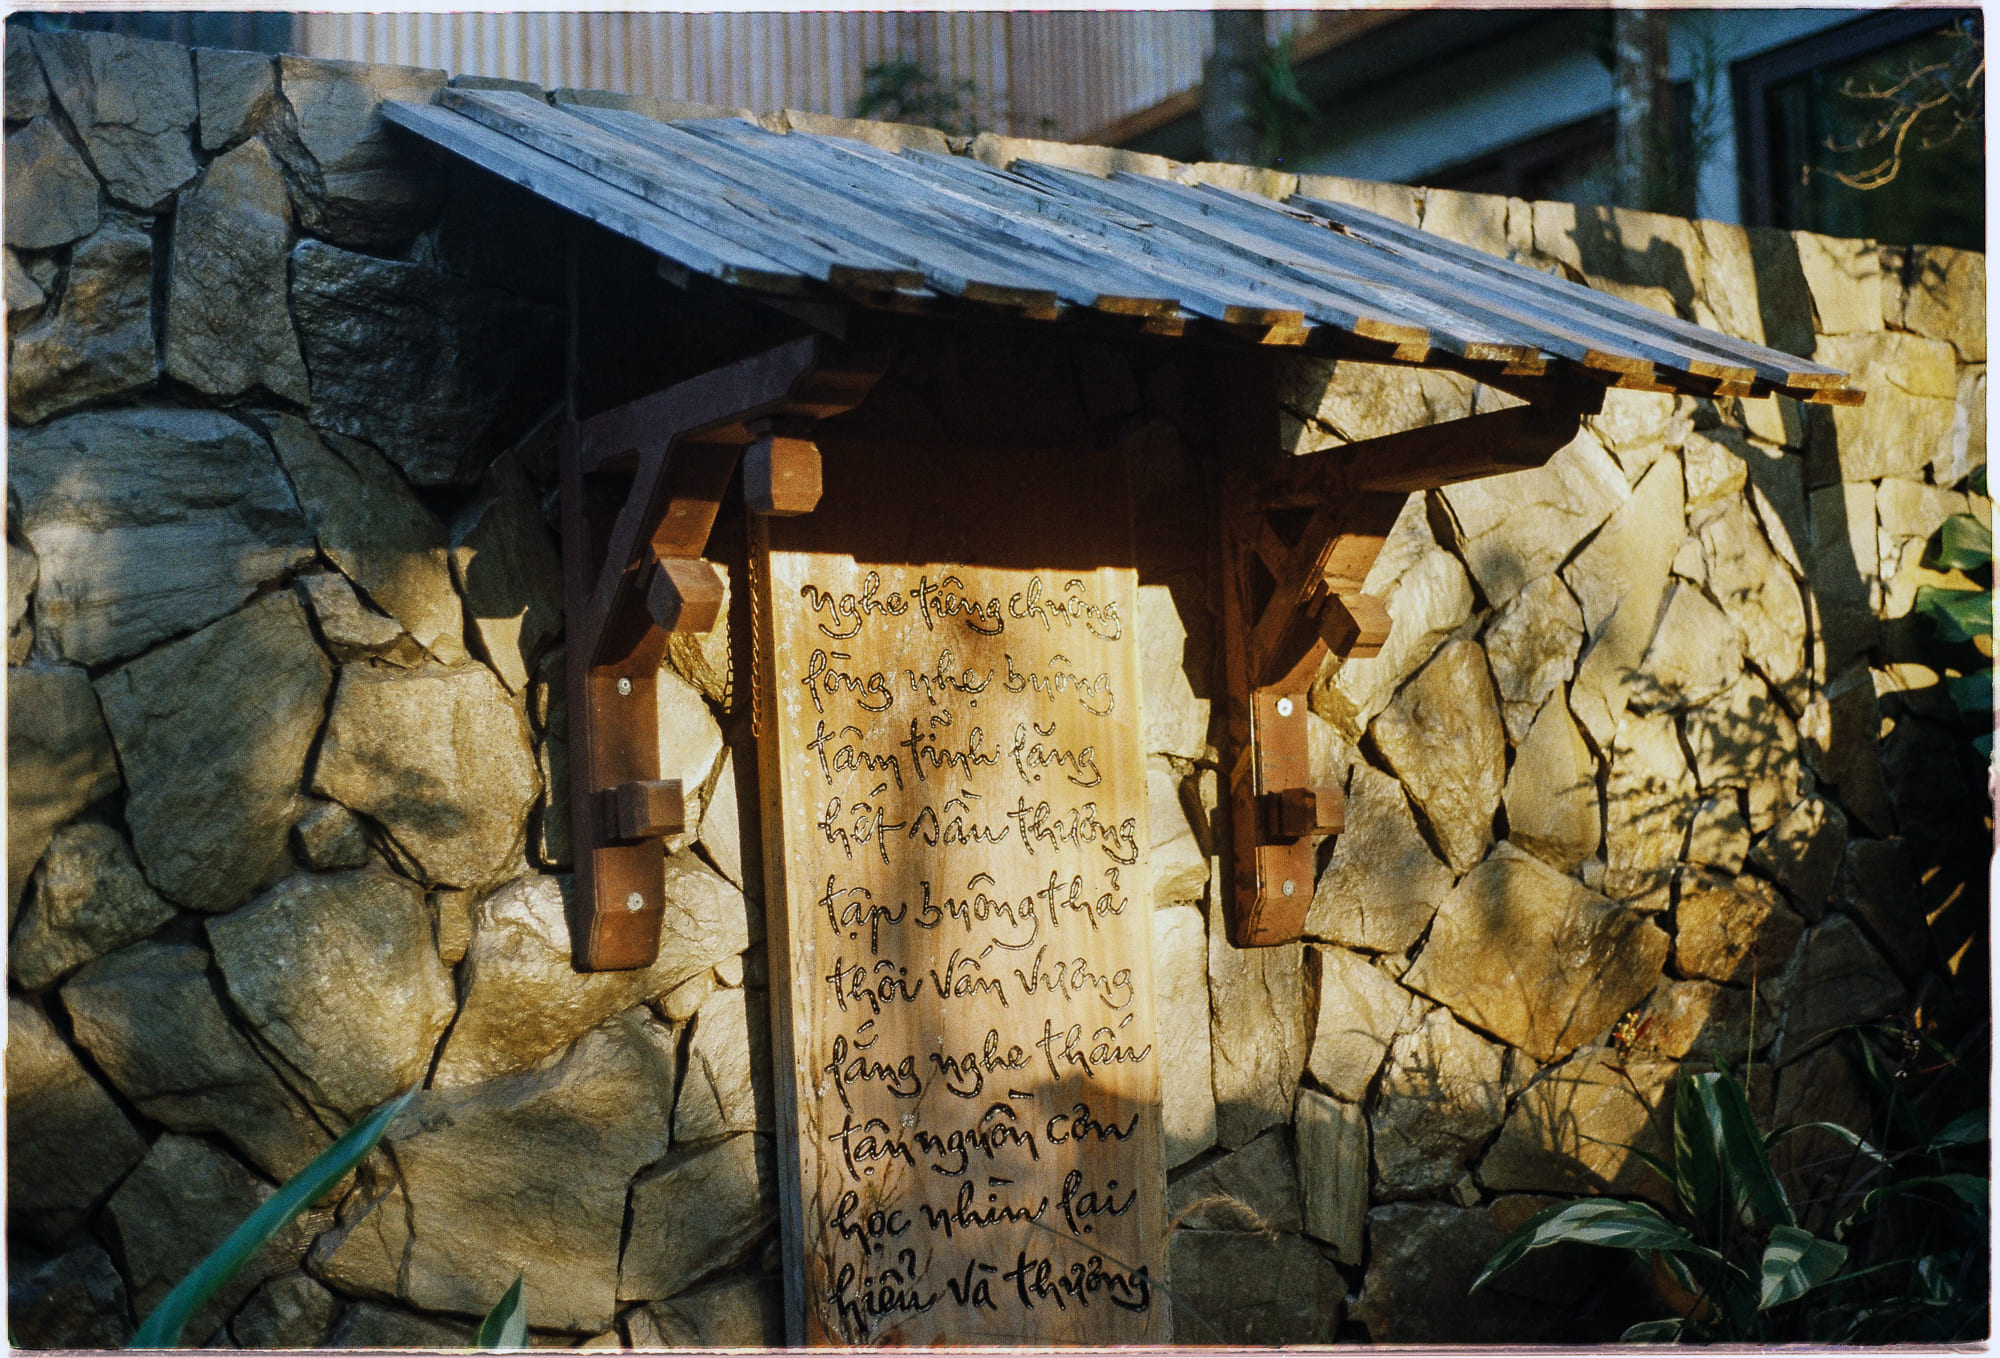 nghe tiếng chuông
lòng nhẹ buông
tâm tĩnh lặng
hết sầu thương
tập buông thả
thôi vấn vương
lắng nghe thấu
tận nguồn cơn
học nhìn lại
hiểu và thương